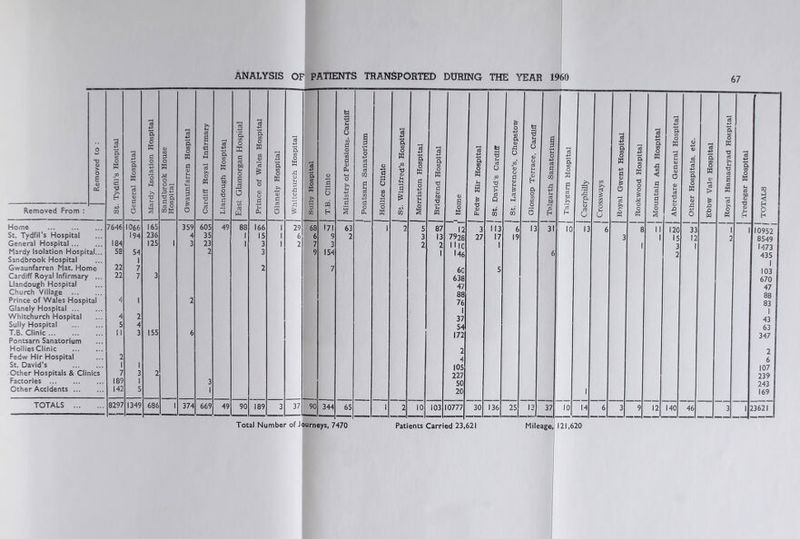 ANALYSIS OF PATIENTS TRANSPORTED DURING THE YEAR 1960
67
Removed to :
Removed From :
St. Tydfil's Hospital
General Hospital
Mardy Isolation Hospital
Sandbrook House Hospital
Gwaunfarren Hospital
Cardiff Royal Infirmary
Llandough Hospital
East Glamorgan Hospital
Prince of Wales Hospital
Glanely Hospital
Whitchurch Hospital
Sully Hospital
T.B. Clinic
Ministry of Pensions, Cardiff
Pontsarn Sanatorium
Hollies Clinic
St. Winifred's Hospital
Morriston Hospital
Bridgend Hospital
Home
Fedw Hir Hospital
St. David's Cardiff
St. Lawrence's, Chepstow
Glossop Terrace, Cardiff
Talgarth Sanatorium
Talygarn Hospital
Caerphilly
Crossways
Royal Gwent Hospital
Rookwood Hospital
Mountain Ash Hospital
Aberdare General Hospital
Other Hospitals, etc.
Ebbw Vale Hospital
Royal Hamadryad Hospital
Tredegar Hospital
TOTALS
Home 7646 1066 165 359 605 49 88 166 1 29 68 171 63 1 2 5 87 12 3 113 6 13 31 10 13 6 8 11 120 33 1 1 10952
St. Tydfil's Hospital 194 236 4 35 1 15 1 6 6 9 2 3 13 7928 27 17 19 3 1 15 12 2 8549
General Hospital ... 184 125 1 3 23 1 3 1 2 7 3 2 2 1110 1 1 3 1 1473
Mardy Isolation Hospital... 58 54 2 3 9 154 1 146 6 2 435
Sandbrook Hospital 1 1
Gwaunfarren Mat. Home 22 7 2 7 60 5 103
Cardiff Royal Infirmary ... 22 7 3 638 670
Llandough Hospital 47 47
Church Village ... 88 88
Prince of Wales Hospital 4 1 2 76 83
Glanely Hospital ... 1 1
Whitchurch Hospital 4 2 37 43
Sully Hospital 5 4 54 63
T.B. Clinic ... 11 3 155 6 172 347
Pontsarn Sanatorium
Hollies Clinic 2 2
Fedw Hir Hospital 2 4 6
St. David's 1 1 105 107
Other Hospitals & Clinics 7 3 2 227 239
Factories ... 189 1 3 50 243
Other Accidents ... 142 5 1 20 1 169
TOTALS ... 8297 1349 686 1 374 669 49 90 189 3 37 90 344 65 1 2 10 103 10777 30 136 25 13 37 10 14 6 3 9 12 140 46 3 1 23621
Total Number of Journeys, 7470 Patients Carried 23,621 Mileage, 121,620